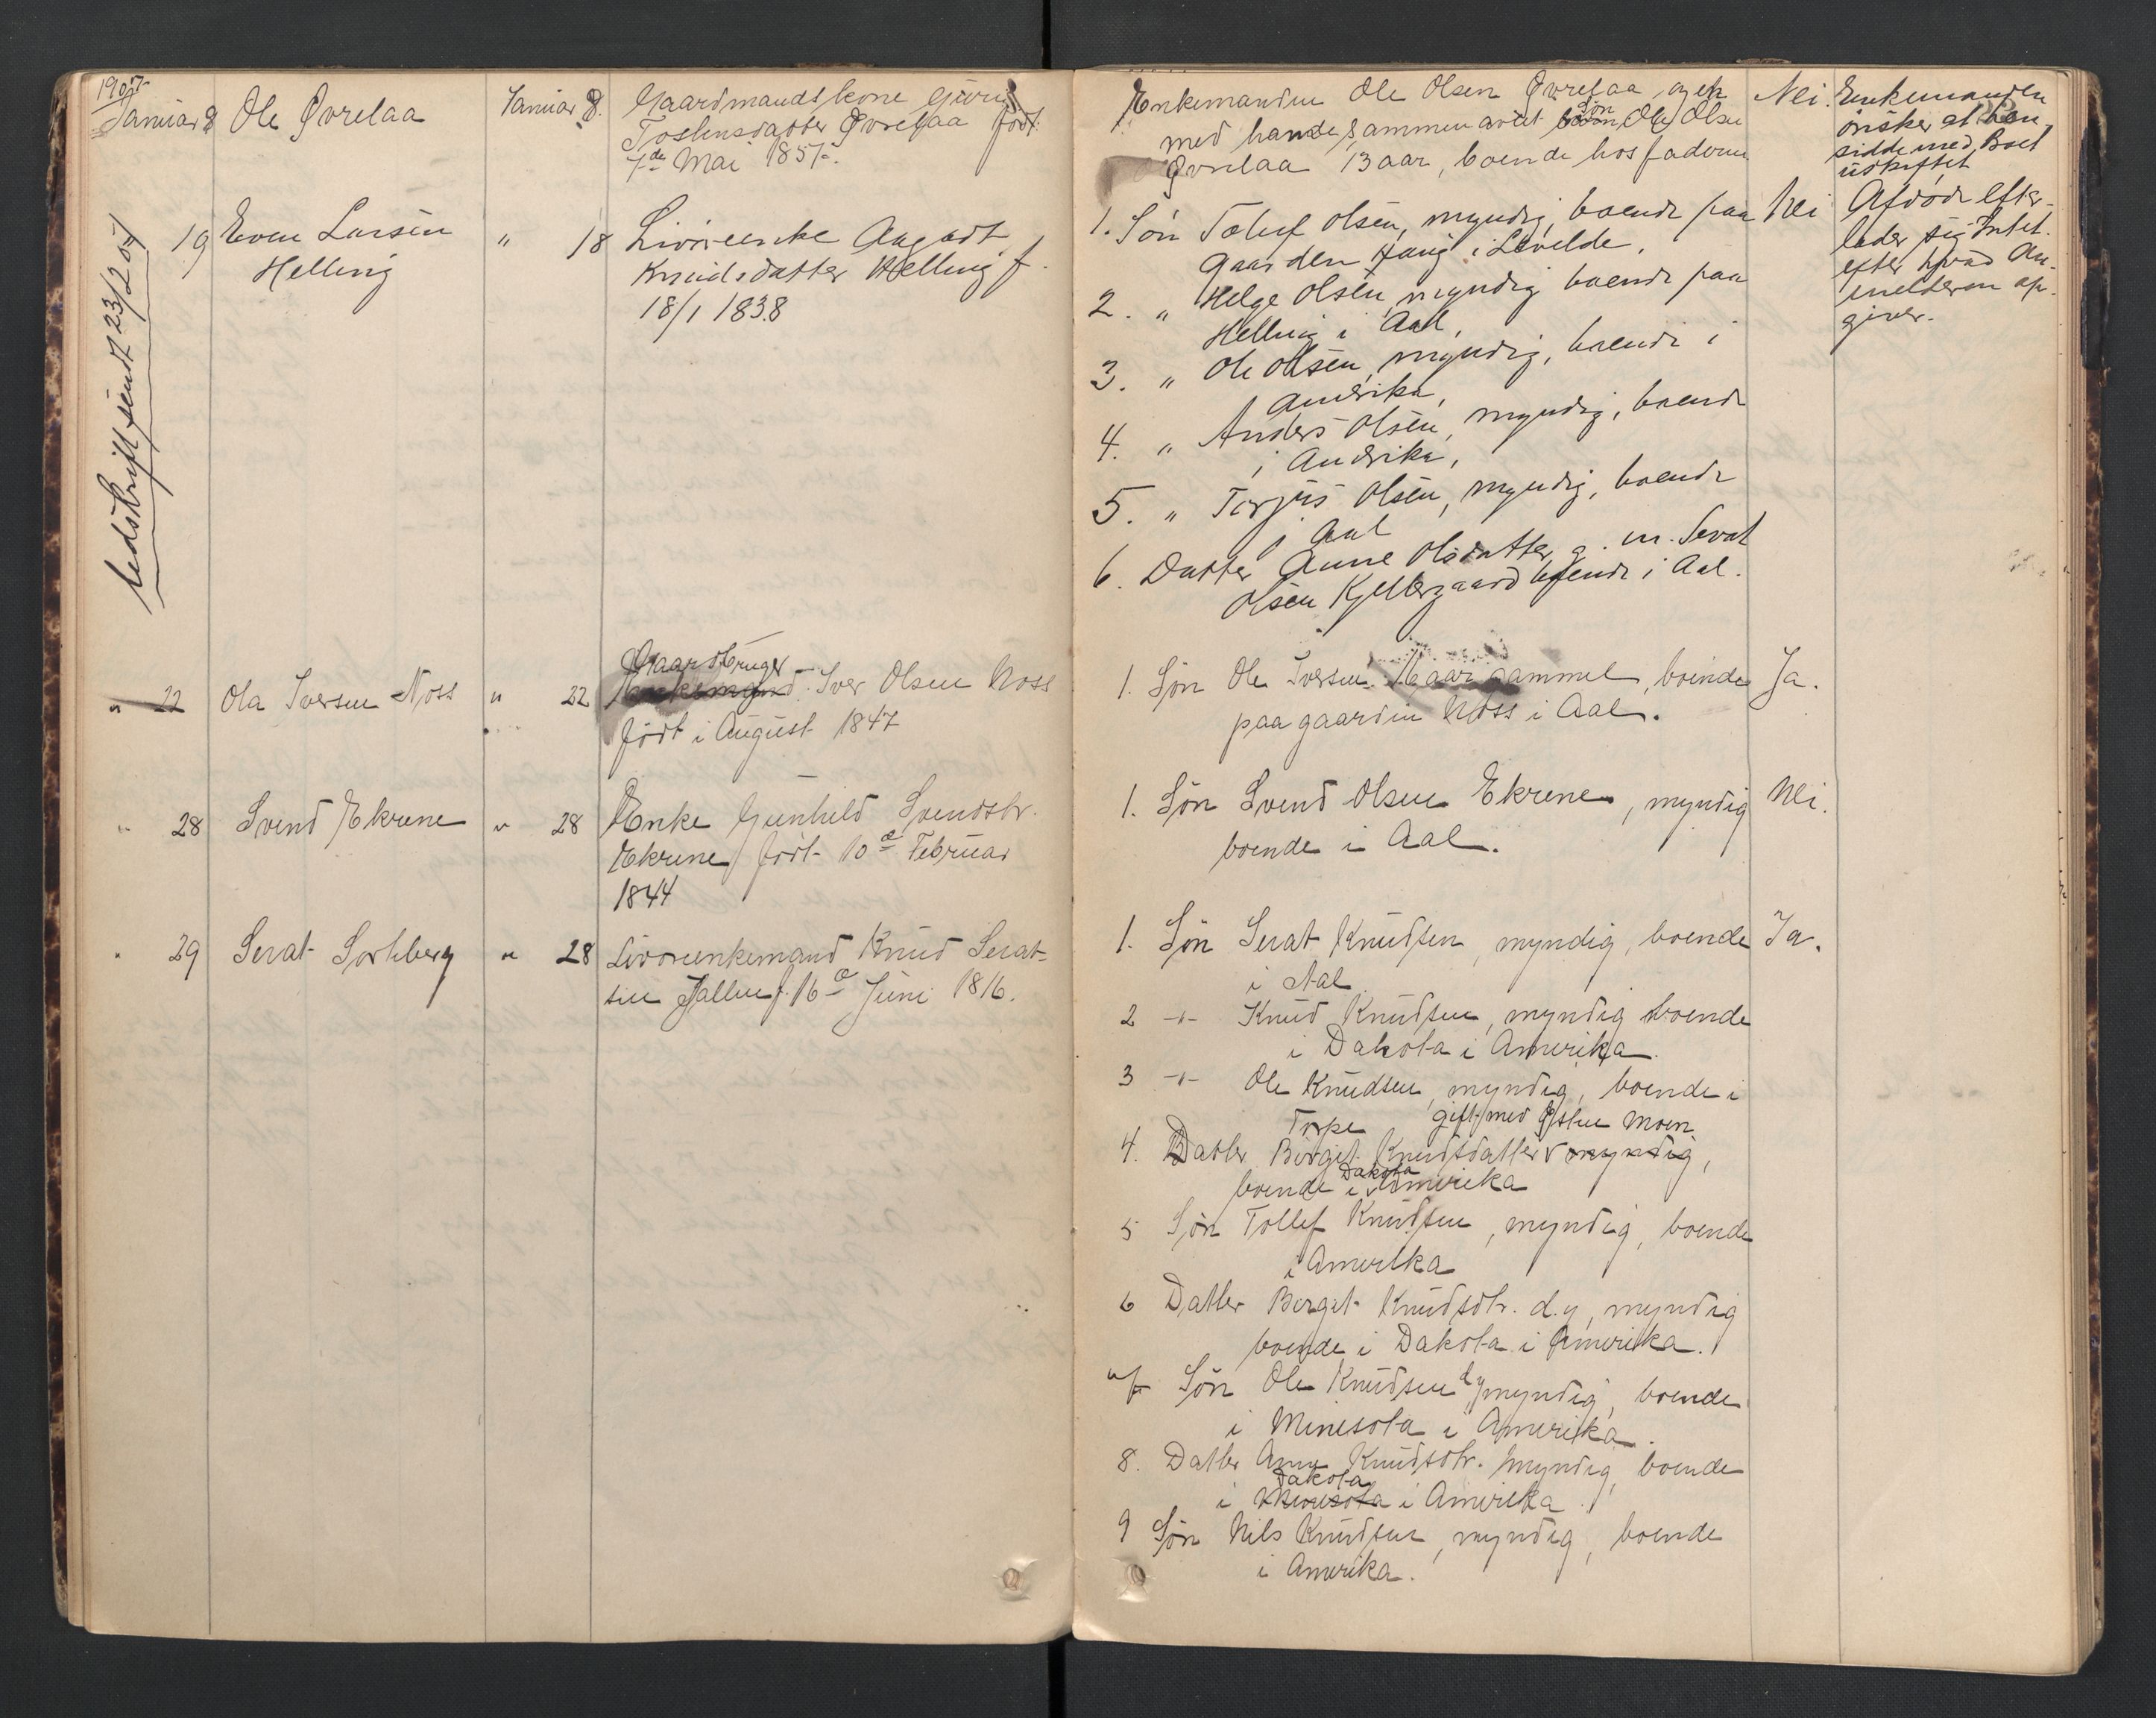 1907
Januar 8
Ole Øvrelaa
Januar 8.
Gaardmandskone Guri
Tostensdatter Øvrelaa født
7de Mai 1857.
Enkemanden Ole Olsen Øvrelaa, og en
med hande sammenavlet Søn Ole Olsen
Øvrelaa 13 aar, boende hos faderen
Nei.
Enkemanden
ønsker at hen-
sidde med Boet
uskiftet
Udskrift sendt 23/2 07
19
Even Larsen
Helling
" 18
Livøreenke Aagodt
Knudsdatter Helling f.
18/1 1838
1. Søn Tollef Olsen, myndig, boende paa
gaarden
2. " Helge Olsen, myndig boende paa
Helling i Aal,
3. " Ole Olsen, myndig, boende i
Amerika,
4. " Anders Olsen, myndig, boende
i Amerika,
5. " Torjus Olsen, myndig, boende
i Aal
6. Datter Anne Olsdatter, g. m. Sevat
Olsen Kjellergaard boende i Aal.
Nei
Afdøde efter-
lader sig Intet.
efter hvad An-
melderen op-
giver.
" 22
Ola Iversen Noss
" 22
Gaardbruger
Enkemand Iver Olsen Noss
født i August 1847
1. Søn Ole Iversen, 16 aar gammel, boende
paa gaarden Noss i Aal.
Ja.
" 28
Svend Ekrene
" 28
Enke Gunhild Svendsdtr.
Ekrene født 10de Februar
1844
1. Søn Svend Olsen Ekrene, myndig
boende i Aal.
Nei.
" 29
Sevat
" 28
Livøreenkemand Knud Sevat-
sen f. 16de Juni 1816.
1. Søn Sevat Knudsen, myndig, boende
i Aal
Ja.
2 -"- Knud Knudsen, myndig boende
i Dakota i Amerika.
3 -"- Ole Knudsen, myndig, boende i
Torpe
gift med Østen Moen
4. Datter Birgit Knudsdatter v myndig,
boende i v Amerika
Dakota
5 Søn Tollef Knudsen, myndig, boende
i Amerika
6 Datter Birgit Knudsdtr. d.y, myndig
boende i Dakota i Amerika.
7 Søn Ole Knudsen d y myndig, boende
i Minesota i Amerika.
8. Datter Anne Knudsdtr. myndig, boende
Dakota
i Minesota i Amerika.
9 Søn Nils Knudsen, myndig, boende
i Amerika.